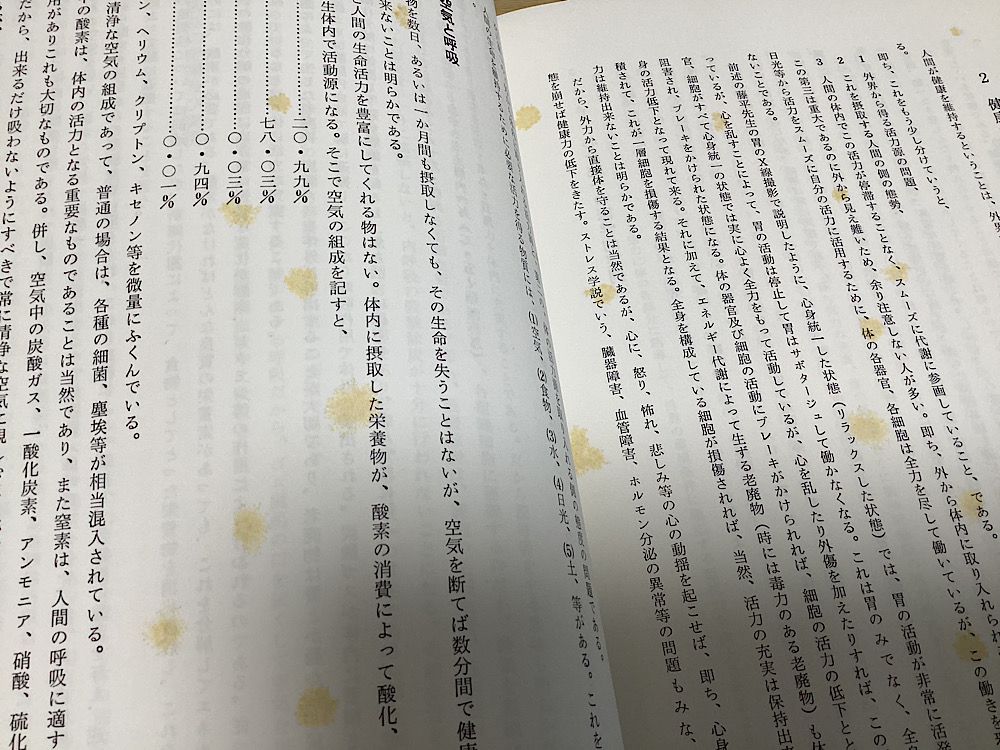 2 健
人間が健康を維持するということは、外界
る。
即ち、これをもう少し分けていうと、
1 外界から得る活力源の問題、
2 これを摂取する人間の側の態勢、
3 人間の体内でこの活力が停滞することなく、スムーズに代謝に参画していること、である。
この第三は重大であるのに外から見え難いため、余り注意しない人が多い。即ち、外から体内に取り入れられ
日光等から活力をスムーズに自分の活力に活用するために、体の各器官、各細胞は全力を尽して働いているが、この働きを
ないことである。
前述の藤平先生の胃のX線撮影で説明したように、心身統一した状態(リラックスした状態)では、胃の活動が非常に活発
っているが、心を乱すことによって、胃の活動は停止して胃はサボタージュして働かなくなる。これは胃のみでなく、全
官、細胞がすべて心身統一の状態では実に心よく全力をもって活動しているが、心を乱したり外傷を加えたりすれば、この
阻害され、ブレーキをかけられた状態になる。体の器官及び細胞の活動にブレーキがかけられれば、細胞の活力の低下とと
身の活力低下となって現れて来る。それに加えて、エネルギー代謝によって生ずる老廃物(時には毒力のある老廃物)も
積されて、これが一層細胞を損傷する結果となる。全身を構成している細胞が損傷されれば、当然、活力の充実は保持出
力は維持出来ないことは明らかである。
だから、外力から直接体を守ることは当然であるが、心に、怒り、怖れ、悲しみ等の心の動揺を起こせば、即ち、心身
態を崩せば健康力の低下をきたす。ストレス学説でいう、臓器障害、血管障害、ホルモン分泌の異常等の問題もみな、
の問題である。
物質には、(1)空気、(2)食物、(3)水、(4)日光、(5)土、等がある。これを
空気と呼吸
物を数日、あるいは一か月間も摂取しなくても、その生命を失うことはないが、空気を断てば数分間で健康
来ないことは明らかである。
と人間の生命活力を豊富にしてくれる物はない。体内に摂取した栄養物が、酸素の消費によって酸化、
生体内で活動源になる。そこで空気の組成を記すと、
…………二〇・九九%
…………七八・〇三%
…………〇・〇三%
…………〇・九四%
…………〇・〇一%
ン、ヘリウム、クリプトン、キセノン等を微量にふくんでいる。
清浄な空気の組成であって、普通の場合は、各種の細菌、塵埃等が相当混入されている。
の酸素は、体内の活力となる重要なものであることは当然であり、また窒素は、人間の呼吸に適す
用がありこれも大切なものである。併し、空気中の炭酸ガス、一酸化炭素、アンモニア、硝酸、硫化
だから、出来るだけ吸わないようにすべきで常に清浄な空気に